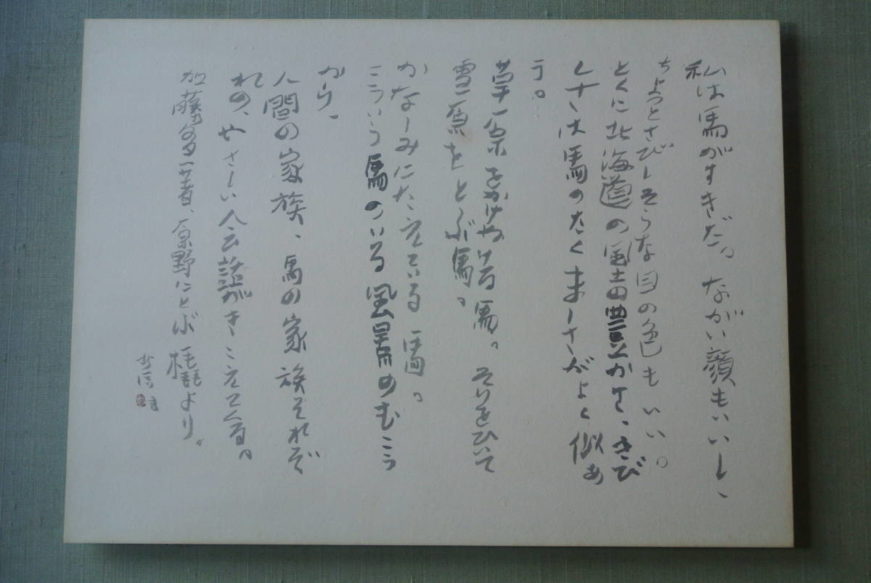 私は馬がすきだ。ながい顔もいいし、
ちょっとさびしそうな目の色もいい。
とくに北海道の風土の豊かさ、きび
しさは馬のたくましさがよく似あ
う。
草原をかけぬける馬。そりをひいて
雪原をとぶ馬。
かなしみにたえている馬。
こういう馬のいる風景のむこう
から、
人間の家族、馬の家族それぞ
れの、やさしい会話がきこえてくる。
加藤多一著、原野にとぶ橇より。